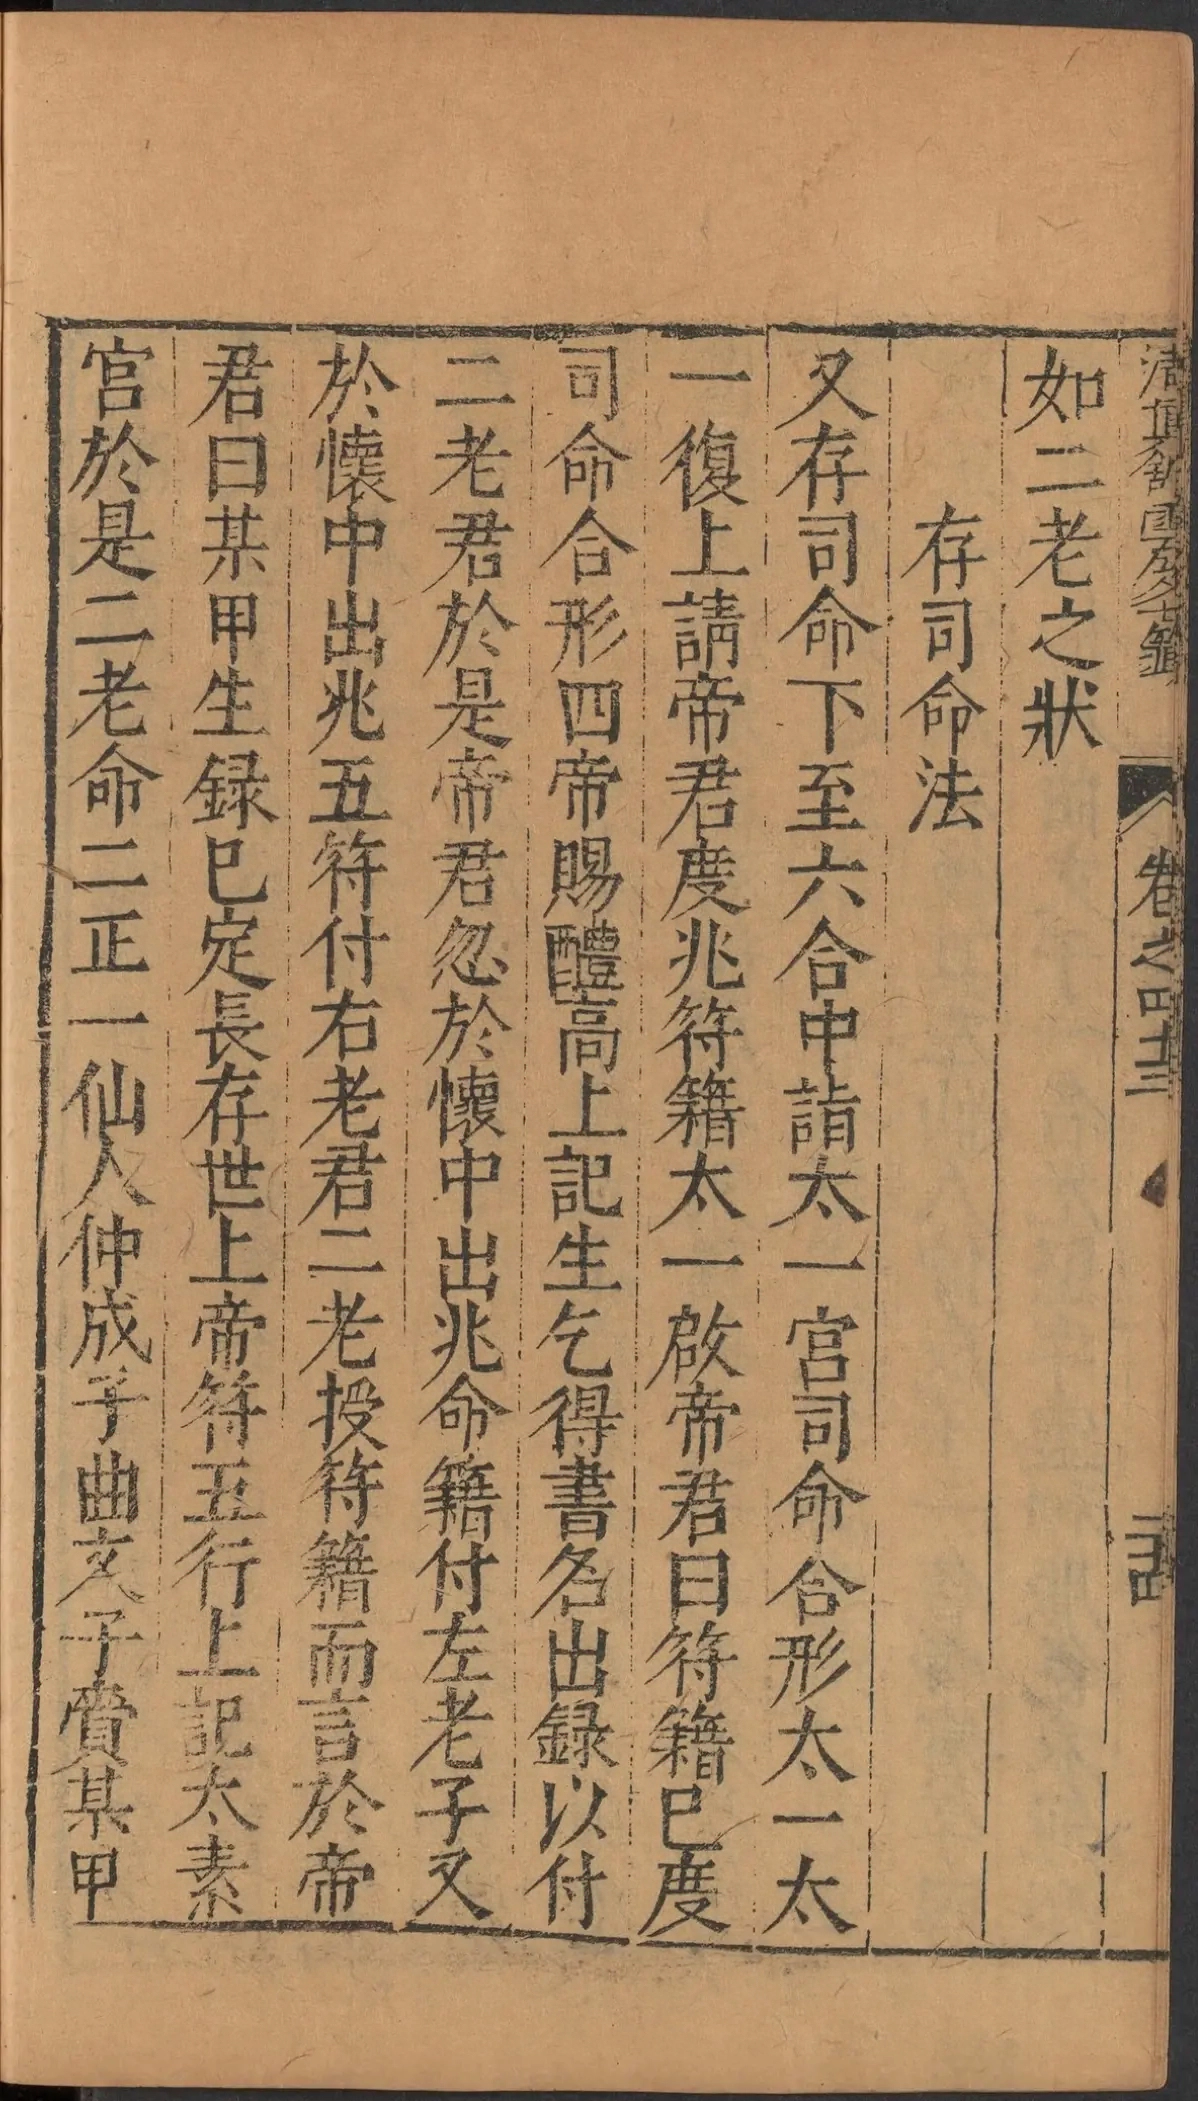 卷之四十三
二十四
如二老之狀
存司命法
又存司命下至六合中詣太一宮司命合形太一太
一復上請帝君度兆符籍太一啟帝君曰符籍巳度
司命合形四帝賜醴高上記生乞得書名出録以付
二老君於是帝君忽於懷中出兆命籍付左老子又
於懷中出兆五符付右老君二老授符籍而言於帝
君曰某甲生録巳定長存世上帝符五行上記太素
宮於是二老命二正一仙人仲成子曲文子賫某甲